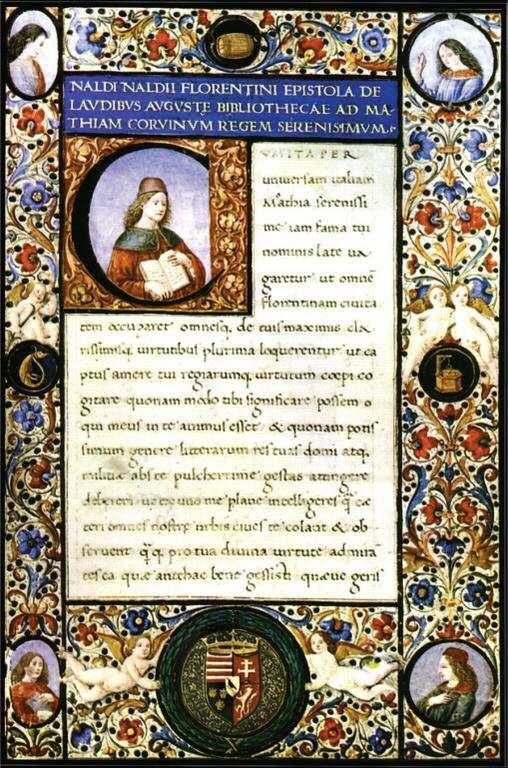 NALDI NALDII FLORENTINI EPISTOLA DE
LAVDIBVS AVGVSTE BIBLIOTHECAE AD MA-
THIAM CORVINVM REGEM SERENISIMVM.
VM ITA PER
universam italiam
Mathia serenissi
me iam fama tui
nominis late va
garetur ut omnē
florentinam civita
tem occuparet omnesq. de tuis maximis cla
rissimisq. virtutibus plurima loquerentur ut ca
ptus amore tui regiarumq. virtutum coepi co
gitare quonam modo tibi significare possem o
qui meus in te animus esset & quonam potis
simum genere litterarum res tuas domi atq.
militiae abs te pulcherrime gestas attingere
deberem ut ex uno me plane intelligeres q̄ cæ
teri omnes nostræ urbis cives te colant & ob
servent q̄q. pro tua divina virtute admirā
tes ea quæ antehac bene gessisti quæve geris